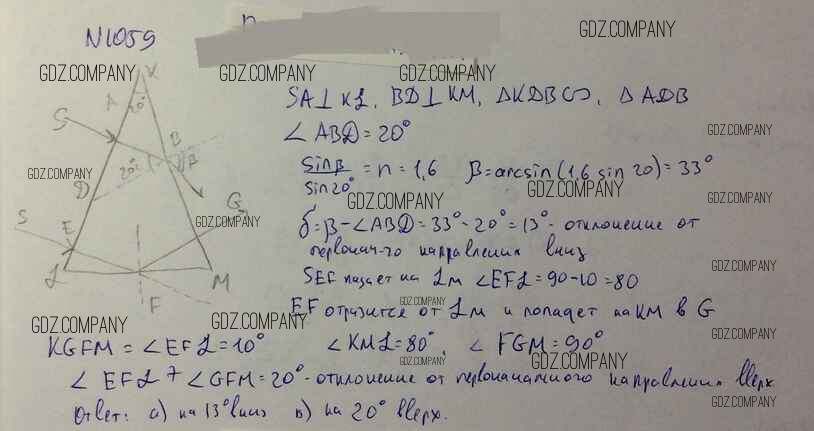 N1059
GDZ.COMPANY
GDZ.COMPANY GDZ.COMPANY GDZ.COMPANY
K
A 20°
S
B
20° β
D
G
S E
L M
F
SA⊥KL, BD⊥KM, ΔKDB∽, ΔADB
∠ABD=20°
GDZ.COMPANY
sinβ/sin20° = n = 1,6 β=arcsin(1,6 sin 20)=33°
GDZ.COMPANY
GDZ.COMPANY
GDZ.COMPANY
GDZ.COMPANY
б=β-∠ABD=33°-20°=13°- отклонение от
первонач-го направления вниз
SEF падает на LM ∠EFL=90-10=80
GDZ.COMPANY
EF отразится от LM и попадет на KM в G
GDZ.COMPANY
GDZ.COMPANY
GDZ.COMPANY GDZ.COMPANY
KGFM = ∠EFL=10° ∠KML=80°, ∠FGM=90°
GDZ.COMPANY
GDZ.COMPANY
GDZ.COMPANY
∠EFL+∠GFM=20°- отклонение от первоначального направления вверх
GDZ.COMPANY
Ответ: а) на 13° вниз в) на 20° вверх.